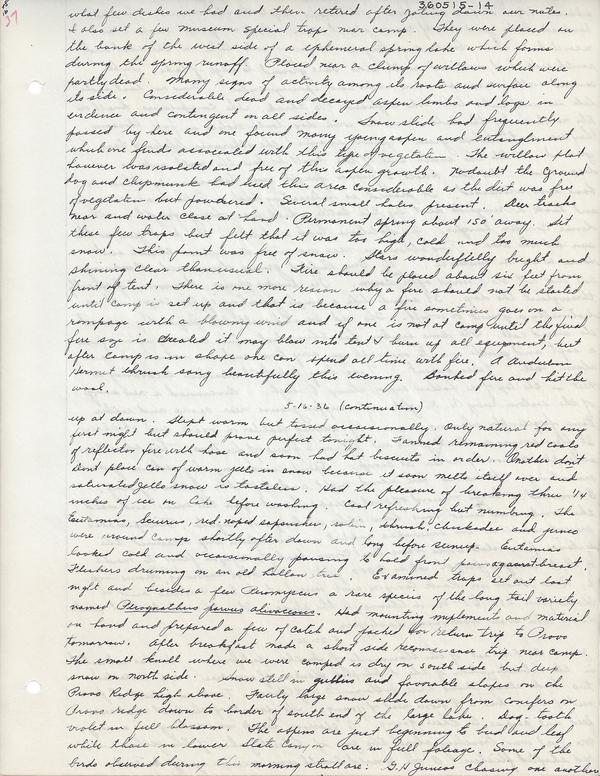 360515-14
37
what few dishes we had and then retired after jotting down our notes.
I also set a few museum special traps near camp. They were placed on
the bank of the west side of a ephemeral spring lake which forms
during the spring runoff. Placed near a clump of willows which were
partly dead. Many signs of activity among its roots and surface along
its side. Considerable dead and decayed aspen limbs and logs in
evidence and contingent on all sides. Snow slide had frequently
passed by here and one found many young aspen and entanglment
which one finds associated with this type of vegetation. The willow plot
however was isolated and free of this aspen growth. No doubt the ground
dog and chipmunk had used this area considerable as the dirt was free
of vegetation but powdered. Several small holes present. Deer tracks
near and water close at hand. Permanent spring about 150' away. Set
these few traps but felt that it was too high, cold and too much
snow. This point was free of snow. Stars wonderfully bright and
shining clear than usual. Fire should be placed about six feet from
front of tent. There is one more reason why a fire should not be started
until camp is set up and that is because a fire sometimes goes on a
rompage with a blowing wind and if one is not at camp until the find
fire size is created it may blow into tent & burn up all equipment, but
after camp is in shape one can spend all time with fire. A Audubon
Hermit thrush sang beautifully this evening. Banked fire and hit the
wool.
5-16-36 (continuation)
up at dawn. Slept warm but tossed occassionally. Only natural for any
first night but should prove perfect tonight. Fanned remaining red coals
of reflector fire with hose and soon had hot biscuits in order. Another don't
Dont place can of warm jello in snow because it soon melts itself over and
saturated jello snow is tasteless. Had the pleasure of breaking thru 1/4
inches of ice on lake before washing. Cool refreshing but numbing. The
Eutamias, Sciurus, red-naped sapsucker, robin, thrush, chickadee and junco
were around camp shortly after dawn and long before sunup. Eutamias
looked cold and occasionally pausing to hold front paws against breast.
Flickers druming on an old hollow tree. Examined traps set out last
night and besides a few Peromyscus a rare species of the long tail variety
named Perognathus parvus olivaceous. Had mounting implements and material
on hand and prepared a few of catch and packed for return trip to Provo
tomorrow. After breakfast made a short side reconnaissance trip near camp.
The small knoll where we were camped is dry on south side but deep
snow on north side. Snow still in gullies and favorable slopes on the
Provo Ridge high above. Fairly large snow slide down from conifers on
Provo ridge down to border of south end of the large lake. Dog-tooth
violet in full blossom. The aspens are just beginning to bud and leaf
while those in lower Slate Canyon are in full foliage. Some of the
birds observed during this morning stroll are: G.H. Juncos chasing one another